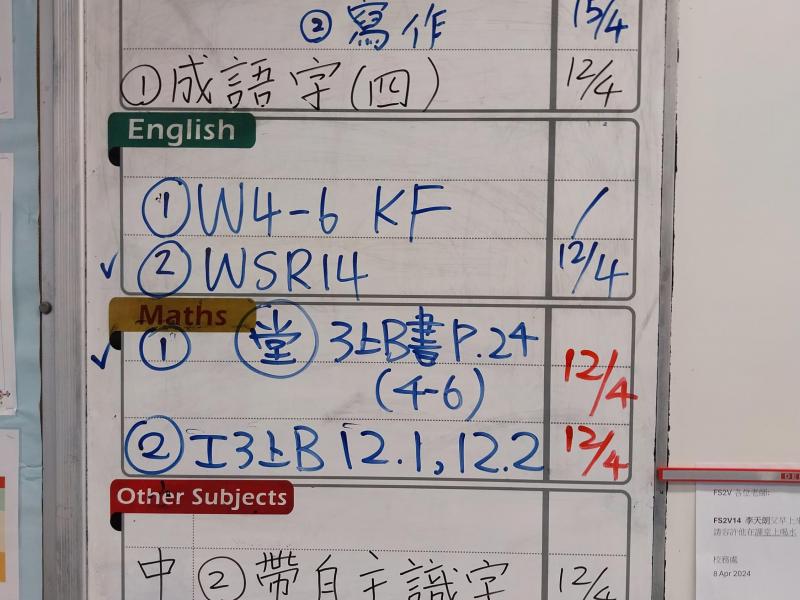 ② 寫作 15/4
① 成語字(四) 12/4
English
① W4-6 KF /
✓ ② WSR14 12/4
Maths
✓ ① 堂 3上B書 P.24
(4-6) 12/4
② 工3上B 12.1, 12.2 12/4
Other Subjects
中 ② 帶自主識字 12/4
FS2V 各位老師:
FS2V14 李天朗
請容許他在課堂上喝水
校務處
8 Apr 2024